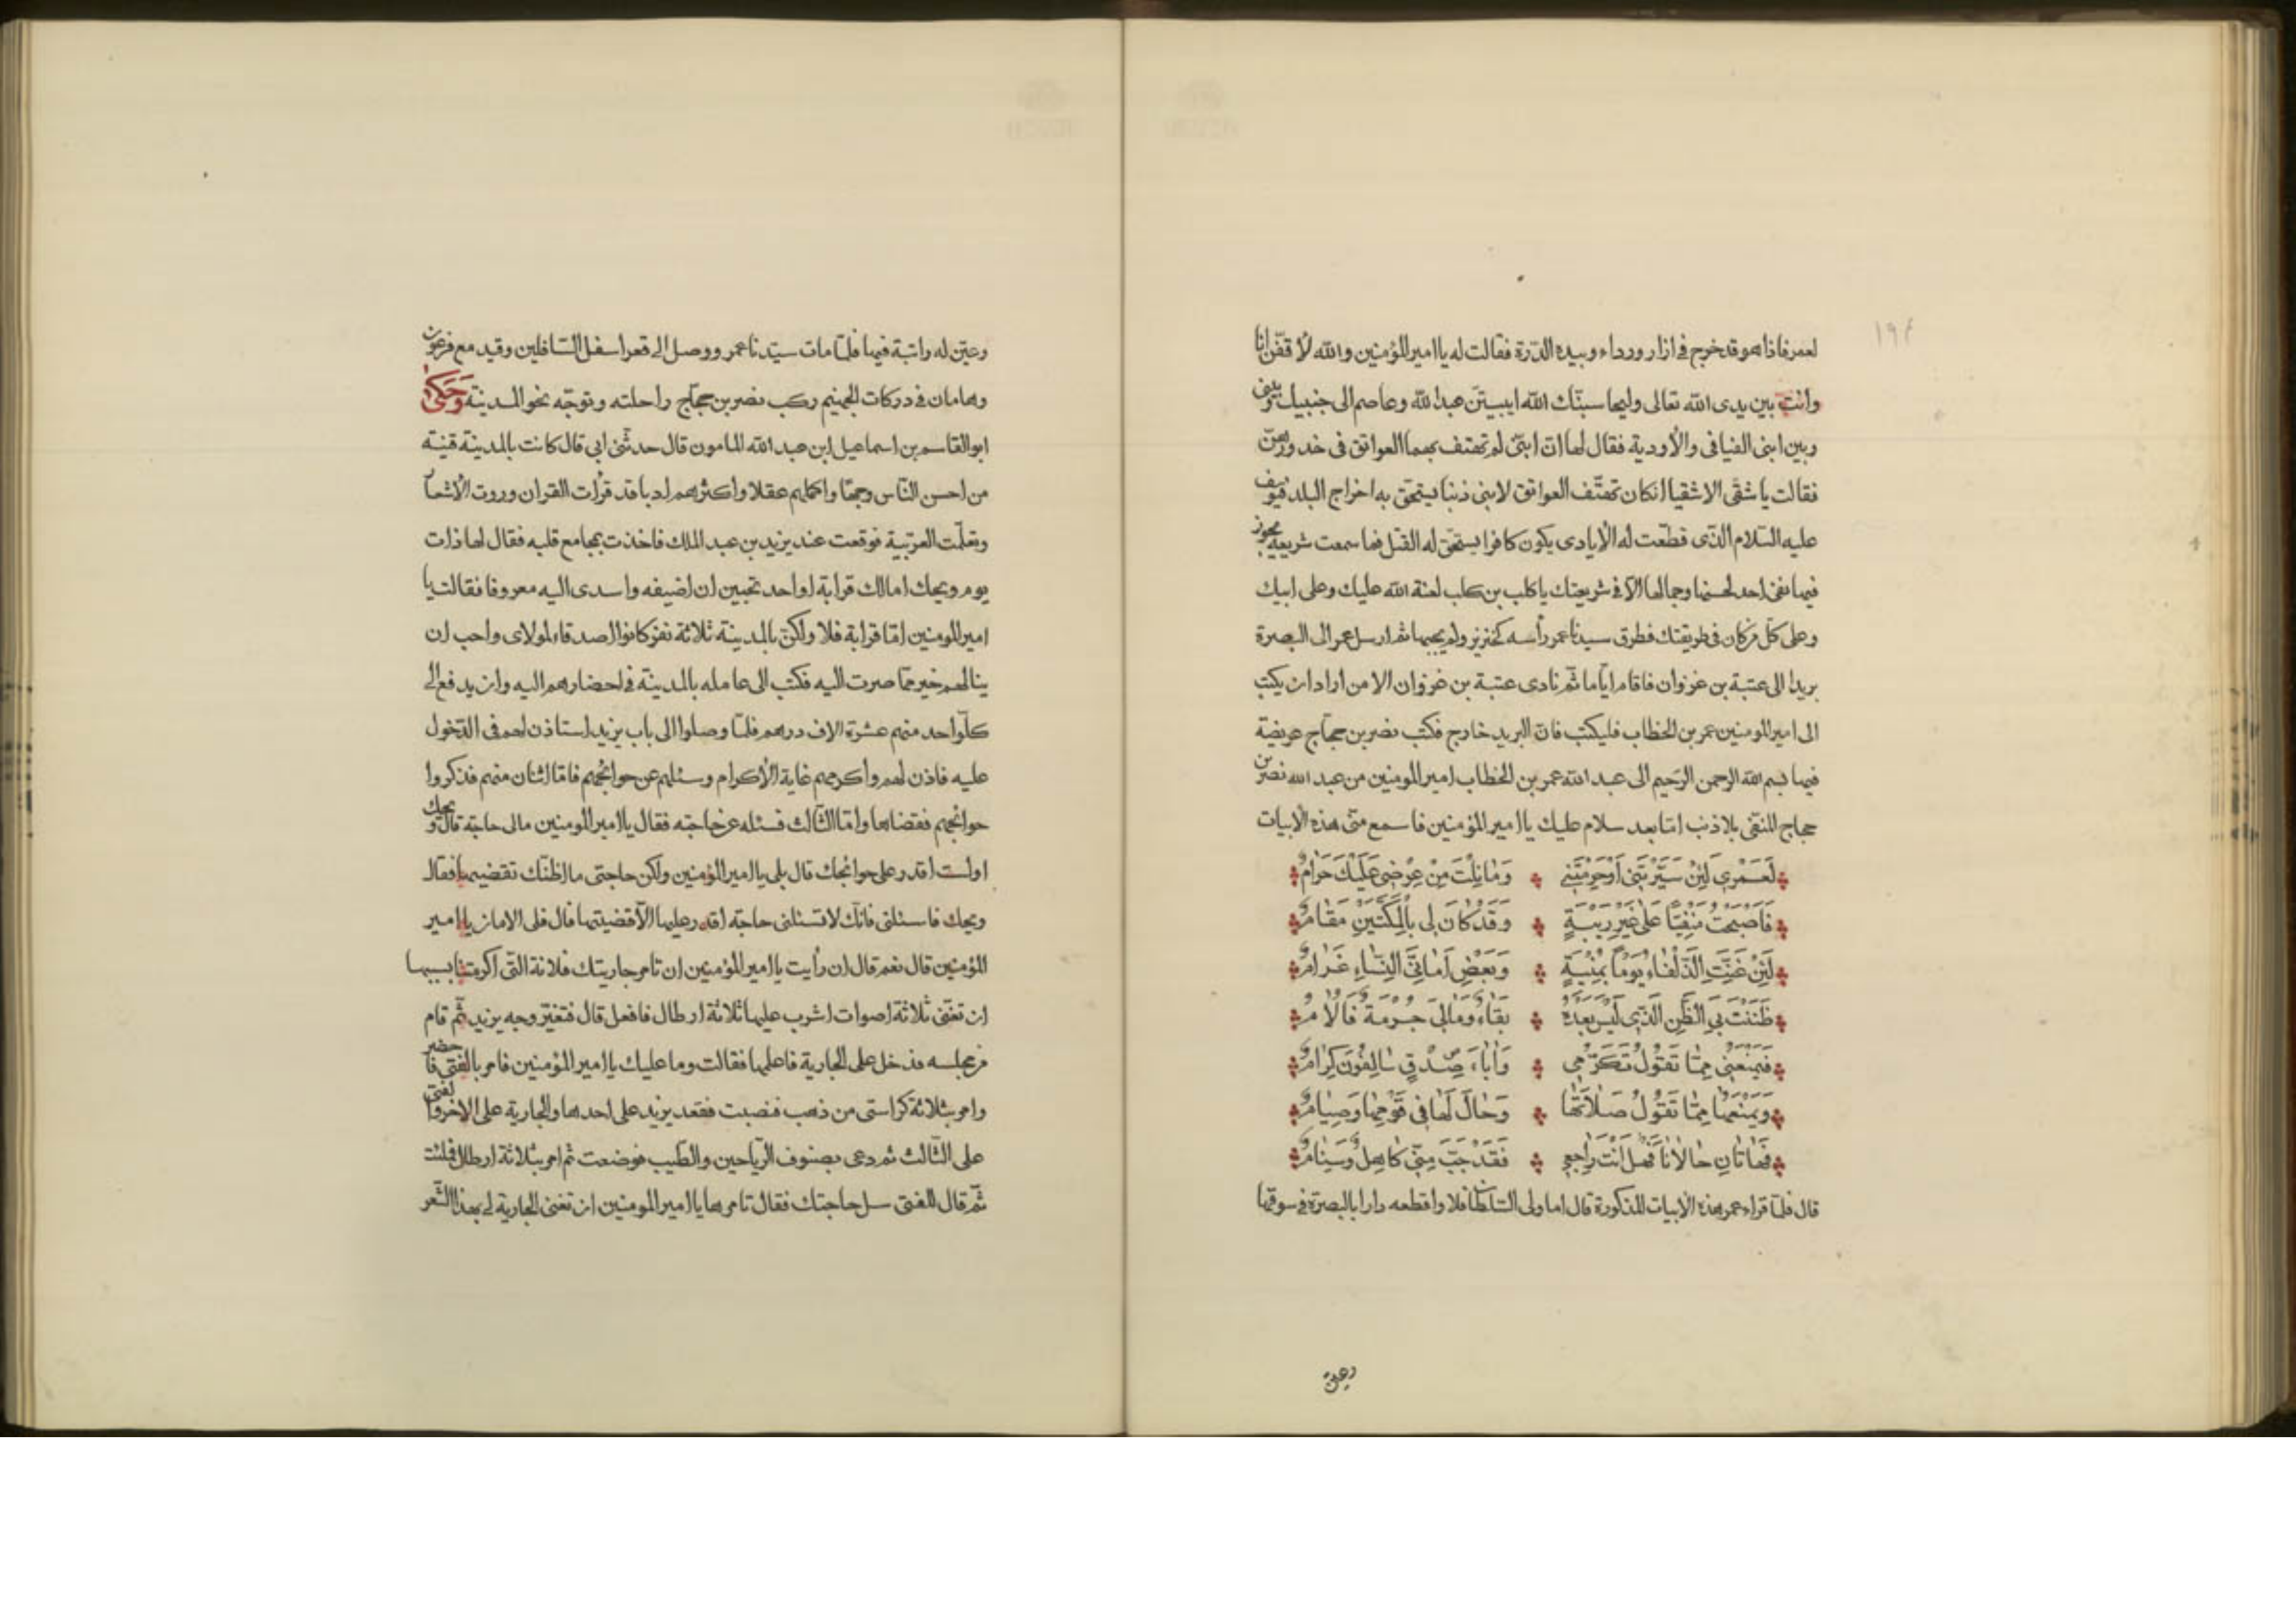 ١٩٤
لعمر فاذا هو قد خرج فى ازار ورداء وبيده الدّرة فقالت له يا امير المؤمنين والله لأقفنّ انا
وانت بين يدى الله تعالى وليحاسبنّك الله ايبيتنّ عبد الله وعاصم الى جنبيك وبينى
وبين ابنى الفيافى والأودية فقال لها انّ ابنىّ لم تهتف بهما العواتق فى خدورهنّ
فقالت يا شقى الاشقيا انكان تهتّف العواتق لابنى ذنبا يستحقّ به اخراج البلد فيوسف
عليه السّلام الّذى قطّعت له الأيادى يكون كافرا يستحقّ له القتل فما سمعت شريعة يجوز
فيها نفى احد لحسنها وجمالها الّا فى شريعتك يا كلب بن كلب لعنة الله عليك وعلى ابيك
وعلى كلّ من كان فى طريقتك فطرق سيدنا عمر رأسه كخنزير ولم يجبها ثم ارسل عمر الى البصرة
بريدا الى عتبة بن غزوان فاقام ايّاما ثمّ نادى عتبة بن غزوان الا من اراد ان يكتب
الى امير المومنين عمر بن الخطاب فليكتب فانّ البريد خارج فكتب نصر بن حجّاج عريضة
فيها بسم الله الرحمن الرّحيم الى عبد الله عمر بن الخطاب امير المومنين من عبد الله نصر بن
حجاج المنفّى بلا ذنب امّا بعد سلام عليك يا امير المؤمنين فاسمع منّى هذه الأبيات
لَعَمْرِى لَئِنْ سَيَّرْتَنِى اَوْحَرَمْتَنِى وَمَا نِلْتَ مِنْ عِرْضِى عَلَيْكَ حَرَامُ
فَاَصْبَحْتُ مَنْفِيًّا عَلَى غَيْرِ رِيبَةٍ وَقَدْ كَانَ لِى بِالْمَكَّتَيْنِ مَقَامُ
لَئِنْ غَنَّتِ الذَّلْفَاءُ يَوْماً بِمُنْيَةٍ وَبَعْضُ اَمَانِىِّ النِّسَاءِ غَرَامُ
ظَنَنْتَ بِىَ الظَّنَّ الَّذِى لَيْسَ بَعْدَهُ بَقَاءٌ وَمَا لِىَ جُرْمَةٌ فَاُلَامُ
فَيَمْنَعُنِى مِمَّا تَقُولُ تَكَرُّمِى وَاٰبَاءُ صِدْقٍ سَالِفُونَ كِرَامُ
وَيَمْنَعُهَا مِمَّا تَقُولُ صَلَاتُهَا وَحَالٌ لَهَا فِى قَوْمِهَا وَصِيَامُ
فَهَاتَانِ حَالَانَا فَهَلْ اَنْتَ رَاجِعِى فَقَدْ جَبَّ مِنِّى كَاهِلٌ وَسَنَامُ
قال فلمّا قراء عمر بهذه الأبيات المذكورة قال اما ولى السّلطان فلا واقطعه دارا بالبصرة فى سوقها
وعيّن
وعيّن له راتبة فيها فلمّا مات سيّدنا عمر ووصل الى قعر اسفل السّافلين وقيد مع فرعون
وهامان فى دركات الجهنيم ركب نصر بن حجّاج راحلته وتوجّه نحو المدينة وَحَكىٰ
ابو القاسم بن اسماعيل ابن عبد الله المامون قال حدثّنى ابى قال كانت بالمدينة قنية
من احسن النّاس وجهًا واكملهم عقلا واكثرهم ادبا قد قرأت القران وروت الأشعار
وتعلّمت العربّية فوقعت عند يزيد بن عبد الملك فاخذت بمجامع قلبه فقال لها ذات
يوم ويحك امالك قرابة او احد تحبين ان اضيفه واسدى اليه معروفا فقالت يا
امير المومنين امّا قرابة فلا ولكنّ بالمدينة ثلاثة نفر كانوا اصدقاء لمولاى واحب ان
ينالهم خير ممّا صرت اليه فكتب الى عامله بالمدينة فى احضارهم اليه وان يدفع الى
كلّ واحد منهم عشرة الاف درهم فلمّا وصلوا الى باب يزيد استاذن لهم فى الدّخول
عليه فاذن لهم واكرمهم غاية الأكرام وسئلهم عن حوائجهم فامّا اثنان منهم فذكروا
حوائجهم فقضاها وامّا الثّالث فسئله عن حاجته فقال يا امير المومنين مالى حاجة قال ويحك
اولست اقدر على حوائجك قال بلى يا امير المؤمنين ولكن حاجتى ما اظنّك تقضيها فقال
ويحك فاسئلنى فانّك لا تسئلنى حاجة اقدر عليها الّا قضيتها قال فلى الامان يا امير
المؤمنين قال نعم قال ان رأيت يا امير المؤمنين ان تامر جاريتك فلانة الّتى اكرمتنا بسببها
ان تغنّى ثلاثة اصوات اشرب عليها ثلاثة ارطال فافعل قال فتغيّر وجه يزيد ثمّ قام
من مجلسه فدخل على الجارية فاعلمها فقالت وما عليك يا امير المؤمنين فامر بالفتى فاحضر
وامر بثلاثة كراسى من ذهب فنصبت فقعد يزيد على احدها والجارية على الاخر والفتى
على الثّالث ثم دعى بصنوف الرّياحين والطّيب فوضعت ثم امر بثلاثة ارطال فملئت
ثمّ قال للفتى سل حاجتك فقال تامرها يا امير المومنين ان تغنى الجارية لى بهذا الشّعر